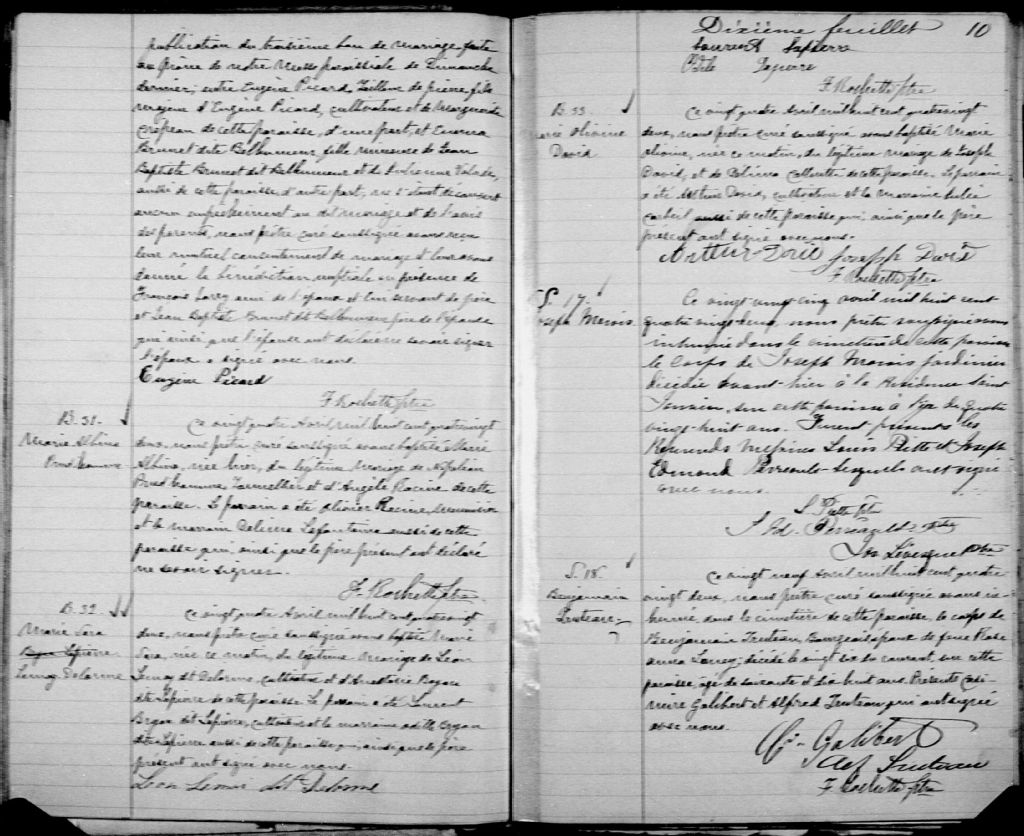 publication du troisième ban de mariage faite
au prône de notre Messe paroissiale de Dimanche
dernier, entre Eugène Picard, Tailleur de pierre, fils
majeur d'Eugène Picard, cultivateur et de Marguerite
Crépeau de cette paroisse, d'une part, et Emma
Brunet dite Bellhumeur, fille mineure de Jean
Baptiste Brunet dit Bellhumeur et de
aussi de cette paroisse d'autre part, ne s'étant découvert
aucun empêchement au dit mariage et de l'avis
des parents, nous prêtre curé soussigné avons reçu
leur mutuel consentement de mariage et leur avons
donné la bénédiction nuptiale en présence de
François ami de l'époux et lui servant de père
et Jean Baptiste Brunet dit Bellhumeur père de l'épouse
qui ainsi que l'épouse ont déclaré ne savoir signer
l'époux a signé avec nous.
Eugène Picard
F. Rochette Ptre
B. 31.
Marie Albina
Prud'homme
Ce vingt quatre Avril mil huit cent quatre vingt
deux, nous prêtre curé soussigné avons baptisé Marie
Albina, née hier, du légitime mariage de Napoléon
Prud'homme, Journallier et d'Angèle Racine de cette
paroisse. Le parrain a été Olivier Racine, menuisier
et la marraine Delima Lafontaine aussi de cette
paroisse qui, ainsi que le père présent ont déclaré
ne savoir signer.
F. Rochette Ptre
B. 32.
Marie Sara
Lapierre
Lemay Delorme
Ce vingt quatre Avril mil huit cent quatre vingt
deux, nous prêtre curé soussigné avons baptisé Marie
Sara, née ce matin, du légitime mariage de Léon
Lemay dit Delorme, cultivateur et d'Anastasie Bryon
dite Lapierre de cette paroisse. Le parrain a été Laurent
Bryon dit Lapierre, cultivateur et la marraine Odile Bryon
dite Lapierre aussi de cette paroisse qui, ainsi que le père
présent ont signé avec nous.
Léon Lemai dit Delorme
Dixième feuillet 10
Laurent Lapierre
Odile Lapierre
F. Rochette Ptre
B. 33.
Marie Olivine
David
Ce vingt quatre Avril mil huit cent quatre vingt
deux, nous prêtre curé soussigné avons baptisé Marie
Olivine, née ce matin, du légitime mariage de Joseph
David, et de Célina de cette paroisse. Le parrain
a été Arthur David, cultivateur et la marraine Julie
Corbeil aussi de cette paroisse qui, ainsi que le père
présent ont signé avec nous.
Arthur David Joseph David
F. Rochette Ptre
S. 17.
Joseph Marois
Ce vingt cinq avril mil huit cent
quatre vingt deux, nous prêtre soussigné avons
inhumé dans le cimetière de cette paroisse
le corps de Joseph Marois jardinier
décédé avant-hier à la Résidence Saint
Janvier, sur cette paroisse à l'âge de quatre
vingt-huit ans. Furent présents les
Révérends Messires Louis Piette et Joseph
Edmond Perreault lesquels ont signé
avec nous.
L. Piette Ptre
J. Ed. Perreault
Jos Lévesque Ptre
S. 18.
Benjamin
Truteau
Ce vingt neuf Avril mil huit cent quatre
vingt deux, nous prêtre curé soussigné avons in-
humé, dans le cimetière de cette paroisse, le corps de
Benjamin Truteau, Bourgeois époux de feue Rose
Anna Larrey; décédé le vingt six du courant, sur cette
paroisse, âgé de soixante et dix huit ans. Présents Casi-
mire Galibert et Alfred Truteau qui ont signé
avec nous.
C. Galibert
Alf Truteau
F. Rochette Ptre